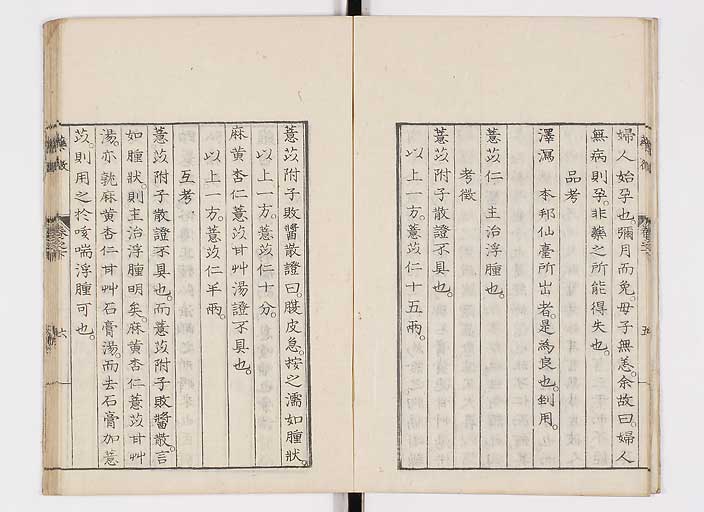 婦人始孕也。彌月而免。母子無恙。余故曰。婦人
無病則孕。非藥之所能得失也。
品考
澤瀉　本邦仙臺所出者。是為良也。剉用。
薏苡仁　主治浮腫也。
考徵
薏苡附子散證不具也。
以上一方。薏苡仁十五兩。
薏苡附子敗醬散證曰。腹皮急。按之濡如腫狀。
以上一方。薏苡仁十分。
麻黃杏仁薏苡甘艸湯證不具也。
以上一方。薏苡仁半兩。
互考
薏苡附子散證不具也。而薏苡附子敗醬散言
如腫狀。則主治浮腫明矣。麻黃杏仁薏苡甘艸
湯。亦就麻黃杏仁甘艸石膏湯。而去石膏加薏
苡。則用之於咳喘浮腫可也。
六